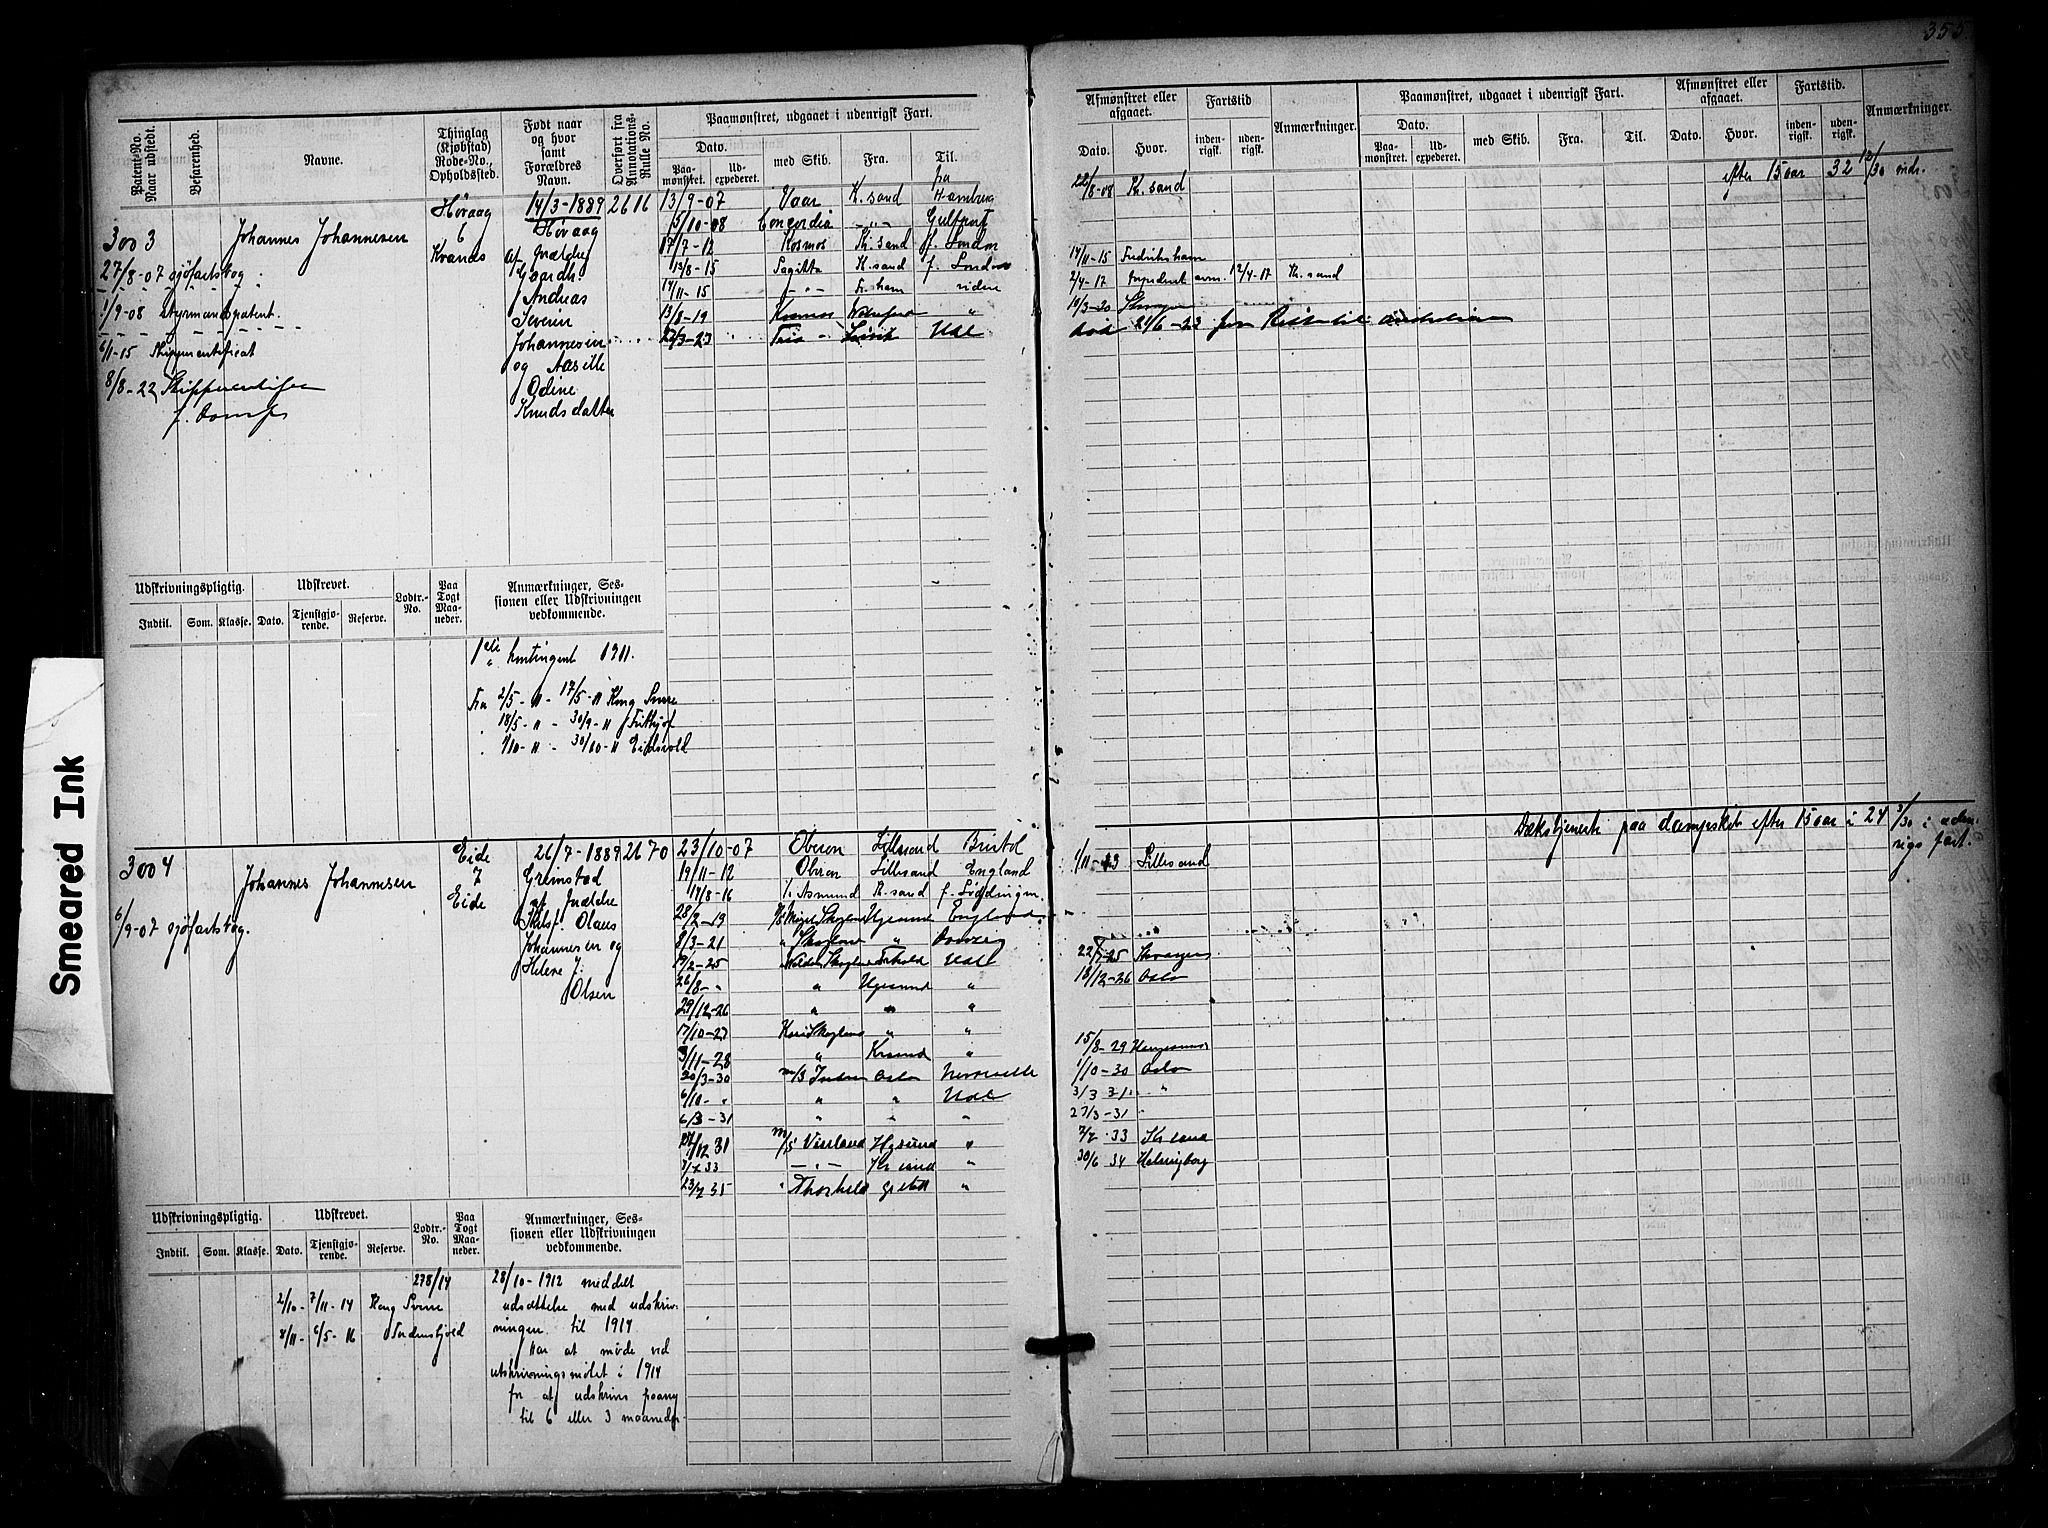 355
Patent-No. Naar udstedt.
Befarenhed.
Navne.
Thinglag (Kjøbstad) Rode-No., Opholdssted.
Født naar og hvor samt Forældres Navn.
Overført fra Annotations-Rulle No.
Paamønstret, udgaaet i udenrigsk Fart.
Dato.
Paa-mønstret.
Ud-expederet.
med Skib.
Fra.
Til.
Afmønstret eller afgaaet.
Dato.
Hvor.
Fartstid
inden-rigsk.
uden-rigsk.
Anmærkninger.
Paamønstret, udgaaet i udenrigsk Fart.
Dato.
Paa-mønstret.
Ud-expederet.
med Skib.
Fra.
Til.
Afmønstret eller afgaaet.
Dato.
Hvor.
Fartstid.
inden-rigsk.
uden-rigsk.
Anmærkninger.
3003
Johannes Johannesen
27/8-07 sjøfartsbog.
1/9-08 Styrmandspatent.
6/11-15
8/8-22
Høvaag
6
Kvanes
14/3-1889
Høvaag
af Forældre
Gaardb.
Andreas
Severin
Johannesen
og Aasille
Odine
Knudsdatter
2616
13/9-07 Vaar K.sand Hamburg
5/10-08 Concordia Gulfport
17/7-12 Kosmos Kr.sand f. London
13/8-15 Sagitta K.sand f. London
14/11-15 Fr.ham videre
13/8-19 Kosmos
22/8-08 K.sand
14/11-15 Fredrikshavn
2/4-17 12/4-17 Kr.sand
10/3-20
død 21/6-23 fra
efter 15 aar 32 12/30 mdr.
Udskrivningspligtig.
Indtil.
Som.
Klasse.
Udskrevet.
Dato.
Tjenstgjø-rende.
Reserve.
Lodtr.-No.
Paa Togt Maa-neder.
Anmærkninger, Ses-
sionen eller Udskrivningen
vedkommende.
1ste kontingent 1911.
Fra 2/5-11 - 17/5-11 Kong Sverre
18/5-11 - 30/9-11 Frithjof
1/10-11 - 30/10-11 Eidsvold
Dækstjeneste paa dampskib efter 15 aar i 24 3/30 i uden-
rigs fart.
3004
Johannes Johannesen
6/9-07 sjøfartsbog.
Eide
7
Eide
26/7-1889
Grimstad
af Forældre
Skibsf. Olaus
Johannesen og
Helene J.
Olsen
2670
23/10-07 Oberon Lillesand Bristol
19/11-12 Oberon Lillesand England
19/8-16 Asmund K.sand f. Löddingen.
28/2-19 England
8/3-21
19/2-25
26/8-" " Hgesund "
29/12-26 " " "
17/10-27 Kari Skogland " "
3/11-28 " Krsand "
20/3-30 M/S Oslo
6/10-" " "
6/3-31 " " "
M/S Vinland Hgsund "
7/2 33 Kr sand "
23/2 35 "
Lillesand
22/7-25 Stavanger
18/12-26 Oslo
15/8-29 Haugesund
1/10-30 Oslo
3/3 31 "
27/3-31
7/2 33 Kr sand
30/6 34 Helsingborg
Udskrivningspligtig.
Indtil.
Som.
Klasse.
Udskrevet.
Dato.
Tjenstgjø-rende.
Reserve.
Lodtr.-No.
Paa Togt Maa-neder.
Anmærkninger, Ses-
sionen eller Udskrivningen
vedkommende.
278/14
2/10- 7/11-14 Kong Sverre
8/11- 6/5-16 Tordenskjold
28/10-1912 meddelt
udsættelse med udskriv-
ningen til 1914
Har at møde ved
utskrivningsmötet i 1914
for at udskrives paany
til 6 eller 3 maaneder.
Smeared Ink